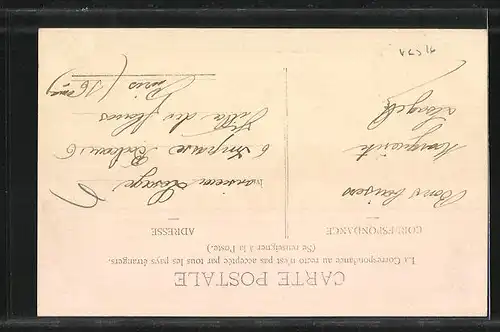 CARTE POSTALE
La Correspondance au recto n'est pas acceptée par tous les pays étrangers.
(Se renseigner à la Poste.)
CORRESPONDANCE
Bons baisers
Marguerite
ADRESSE
Monsieur Lesage
6 Impasse
Villa des fleurs
Paris (16